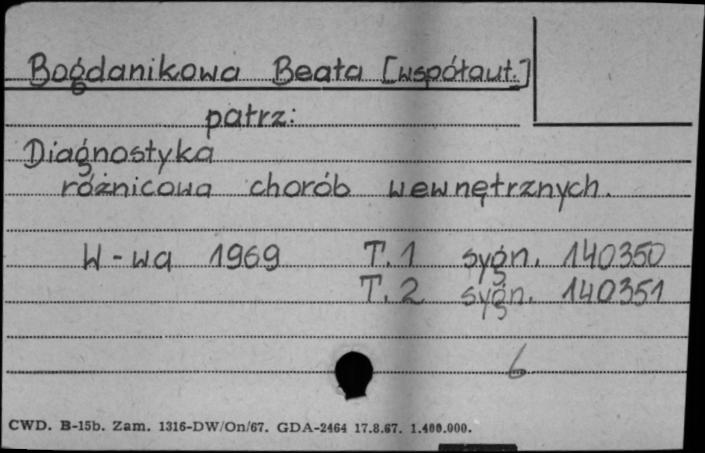 Bogdanikowa Beata [współaut.]
patrz:
Diagnostyka
różnicowa chorób wewnętrznych.
W-wa 1969 T.1 sygn. 140350
T.2 sygn. 140351
6
CWD. B-15b. Zam. 1316-DW/On/67. GDA-2464 17.8.67. 1.400.000.